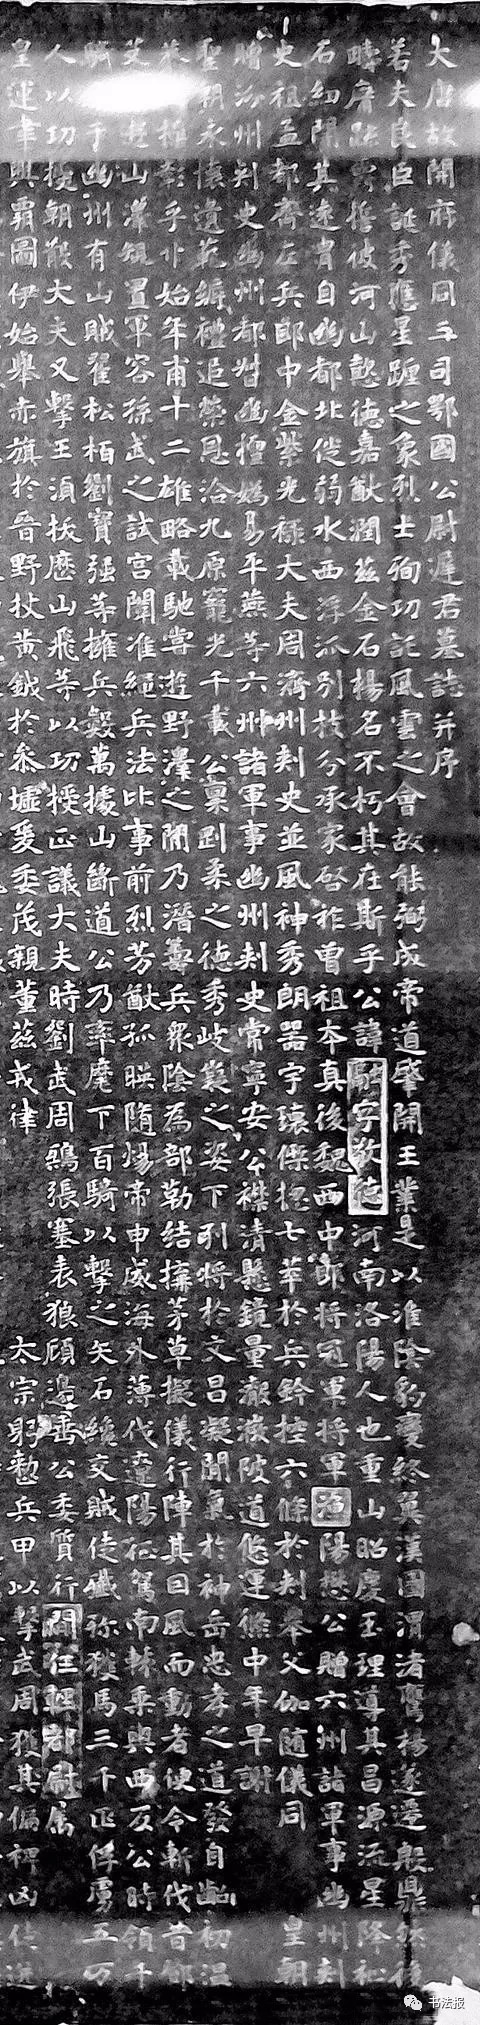 大唐故開府儀同三司鄂國公尉遲君墓誌并序
若夫良臣誕秀應星躔之象烈士殉功託風雲之會故能弼成帝道肇開王業是以淮陰豹變終翼漢圖渭渚鷹揚遂遷殷鼎
疇庸跡寄誓彼河山懿德嘉猷潤茲金石楊名不朽其在斯乎公諱融字敬德河南洛陽人也重山昭慶玉理導其昌源流星降祉
石紐開其遠胄自幽都北徙弱水西浮派別枝分承家啓祚曾祖本真後魏西中郎將冠軍將軍漁陽懋公贈六州諸軍事幽州刺
史祖孟都齊左兵郎中金紫光祿大夫周濟州刺史並風神秀朗器宇瓌傑揔七萃於兵鈐控六條於刺舉父伽隨儀同 皇朝
贈汾州刺史幽州都督幽檀媯易平燕等六州諸軍事幽州刺史常寧安公襟清懸鏡量澈陂道悠運促中年早謝
聖朝永懷遺範縟禮追榮恩洽九原寵光千載 公稟剛柔之德秀岐嶷之姿下列將於文昌凝閒氣於神岳忠孝之道發自齠初溫
恭 彰乎丱始年甫十二雄略載馳嘗遊野澤之閒乃潛籌兵眾陰為部勒結撫茅草擬儀行陣其回風而動者便令斬伐昔鄧
艾 山澤規置軍容孫武之試宮闈准繩兵法比事前烈芳猷孤暎隋煬帝申威海外薄伐遼陽征駕南轅乘輿西反公時領千
騎 于幽州有山賊翟松柏劉寶強等擁兵數萬據山斷道公乃率麾下百騎以擊之矢石纔交賊徒殲殄獲馬三千疋俘虜五万
人以功授朝散大夫又擊王須拔歷山飛等以功授正議大夫時劉武周鴟張塞表狼顧邊垂公委質行間任輕都尉屬
皇運聿興霸圖伊始舉赤旗於晉野杖黃鉞於參墟爰委茂親董茲戎律 太宗躬懃兵甲以擊武周獲其偏裨凶徒進
書法报